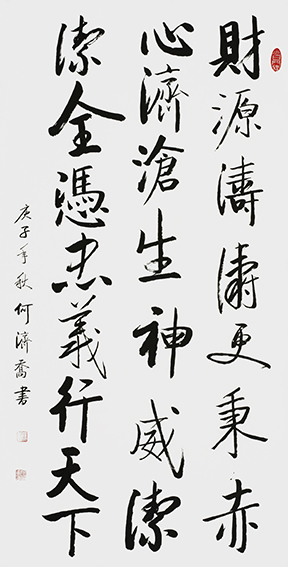 財源濤濤更秉赤
心濟滄生神威潔
潔全憑忠義行天下
庚子年秋何濟喬書